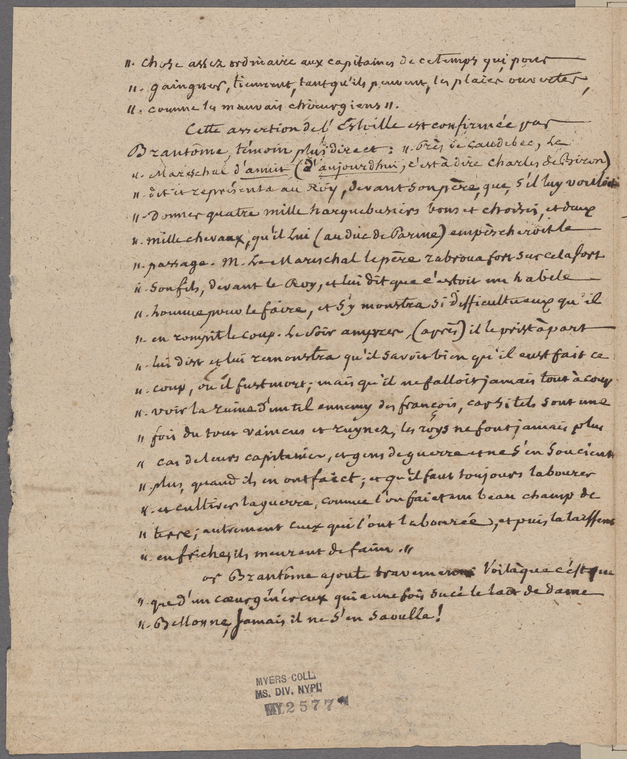 ". chose assez ordinaire aux capitaines de ce temps qui pour
". gaingner, tiennent, tant qu'ils peuvent, les plaies ouvertes,
". comme les mauvais chirurgiens ".
Cette assertion de l'Estville est confirmée par
Brantôme, témoin plus direct : ". Près de Caudebec, Le
". Mareschal d'amut (d'aujourdhui, c'est à dire charles de Biron)
". dit et représenta au Roy, devant son père, que s'il luy vouloit
". donner quatre mille harquebusiers bons et choisis, et deux
". mille chevaux, qu'il lui (au duc de Parme) empischeroit le
". passage. M. Le Mareschal le père rabroua fort sur cela fort
". son fils, devant le Roy, et lui dit que c'estoit un habile
". homme pour le faire, et s'y monstra si difficultueux qu'il
". en rompit le coup. Le soir amprez, (après) il le prist à part
". lui dist et lui remonstra qu'il savoit bien qu'il eust fait ce
". coup, ou il fust mort; mais qu'il ne falloit jamais tout à coup
". voir la ruine d'un tel ennemy des françois, car si tels sont une
". fois du tout vaincus et ruynez, les roys ne font jamais plus
" cas de leurs capitaines, et gens de guerre et ne s'en soucient
" plus, quand ils en ont faict; et qu'il faut toujours labourer
". et cultiver la guerre, comme l'on faict un beau champ de
". terre; autrement ceux qui l'ont labourée, et puis la laissent
". en friche, ils meurent de faim. "
or Brantôme ajoute Voilà que c'est que
". que d'un coeur généreux qui a une fois sucé le laict de dame
". Bellonne, Jamais il ne s'en saoulla!
MYERS COLL.
MS. DIV. NYPL
MY 2577